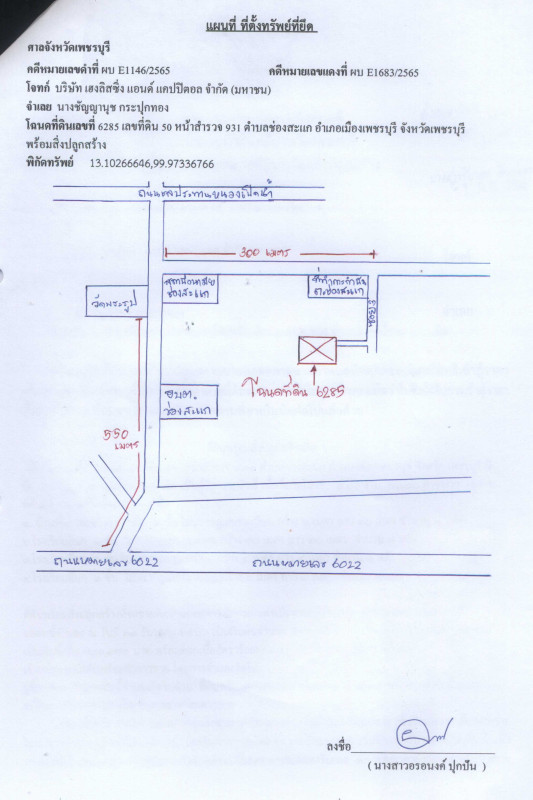 แผนที่ ที่ตั้งทรัพย์ที่ยึด
ศาลจังหวัดเพชรบุรี
คดีหมายเลขดำที่ ผบ E1146/2565 คดีหมายเลขแดงที่ ผบ E1683/2565
โจทก์ บริษัท เฮงลิสซิ่ง แอนด์ แคปปิตอล จำกัด (มหาชน)
จำเลย นางชัญญานุช กระปุกทอง
โฉนดที่ดินเลขที่ 6285 เลขที่ดิน 50 หน้าสำรวจ 931 ตำบลช่องสะแก อำเภอเมืองเพชรบุรี จังหวัดเพชรบุรี
พร้อมสิ่งปลูกสร้าง
พิกัดทรัพย์ 13.10266646,99.97336766
300 เมตร
ช่องสะแก
ที่ทำการกำนัน
ต.ช่องสะแก
วัดพระรูป
โฉนดที่ดิน 6285
อบต.
ช่องสะแก
550
เมตร
ถนนหมายเลข 6022
ถนนหมายเลข 6022
ลงชื่อ
( นางสาวอรอนงค์ ปุกปัน )